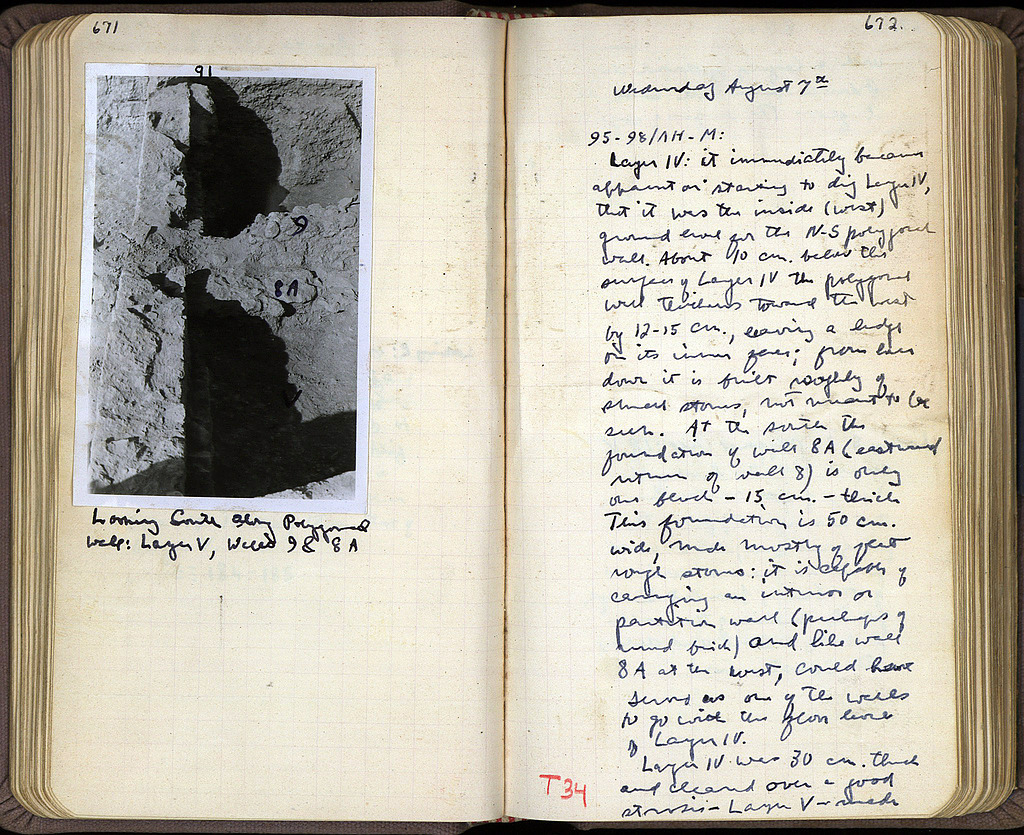 671
91
9
8A
V
Looking South along Polygonal
wall: Layer V, Walls 9 & 8A
672.
Wednesday August 7th
95-98/ΛH-M:
Layer IV: it immediately became
apparent on starting to dig Layer IV,
that it was the inside (west)
ground level for the N-S polygonal
wall. About 10 cm. below the
surface of Layer IV the polygonal
wall thickens toward the west
by 12-15 cm., leaving a ledge
on its inner face; from here
down it is built roughly of
small stones, not meant to be
seen. At the south the
foundation of wall 8A (eastward
return of wall 8) is only
one block - 15 cm. - thick
This foundation is 50 cm.
wide, made mostly of great
rough stones: it is capable of
carrying an interior or
partition wall (perhaps of
mud brick) and like wall
8A at the west, could have
served as one of the walls
to go with the floor level
of Layer IV.
Layer IV was 30 cm. thick
and cleared over a good
strosis - Layer V - made
T34